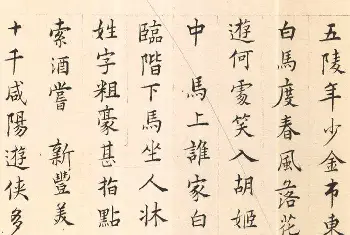 五陵年少金市東
白馬度春風落花
遊何處笑入胡姬
中 馬上誰家白
臨階下馬坐人牀
姓字粗豪甚指點
索酒嘗 新豐美
十千咸陽遊俠多